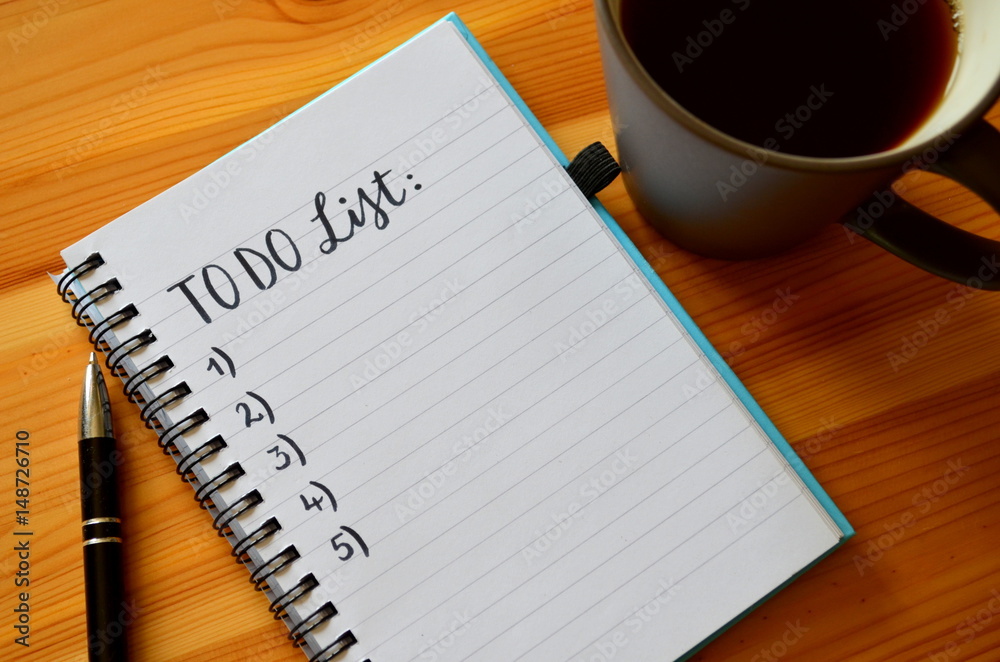 TO DO List:
1)
2)
3)
4)
5)
Adobe Stock | #148726710